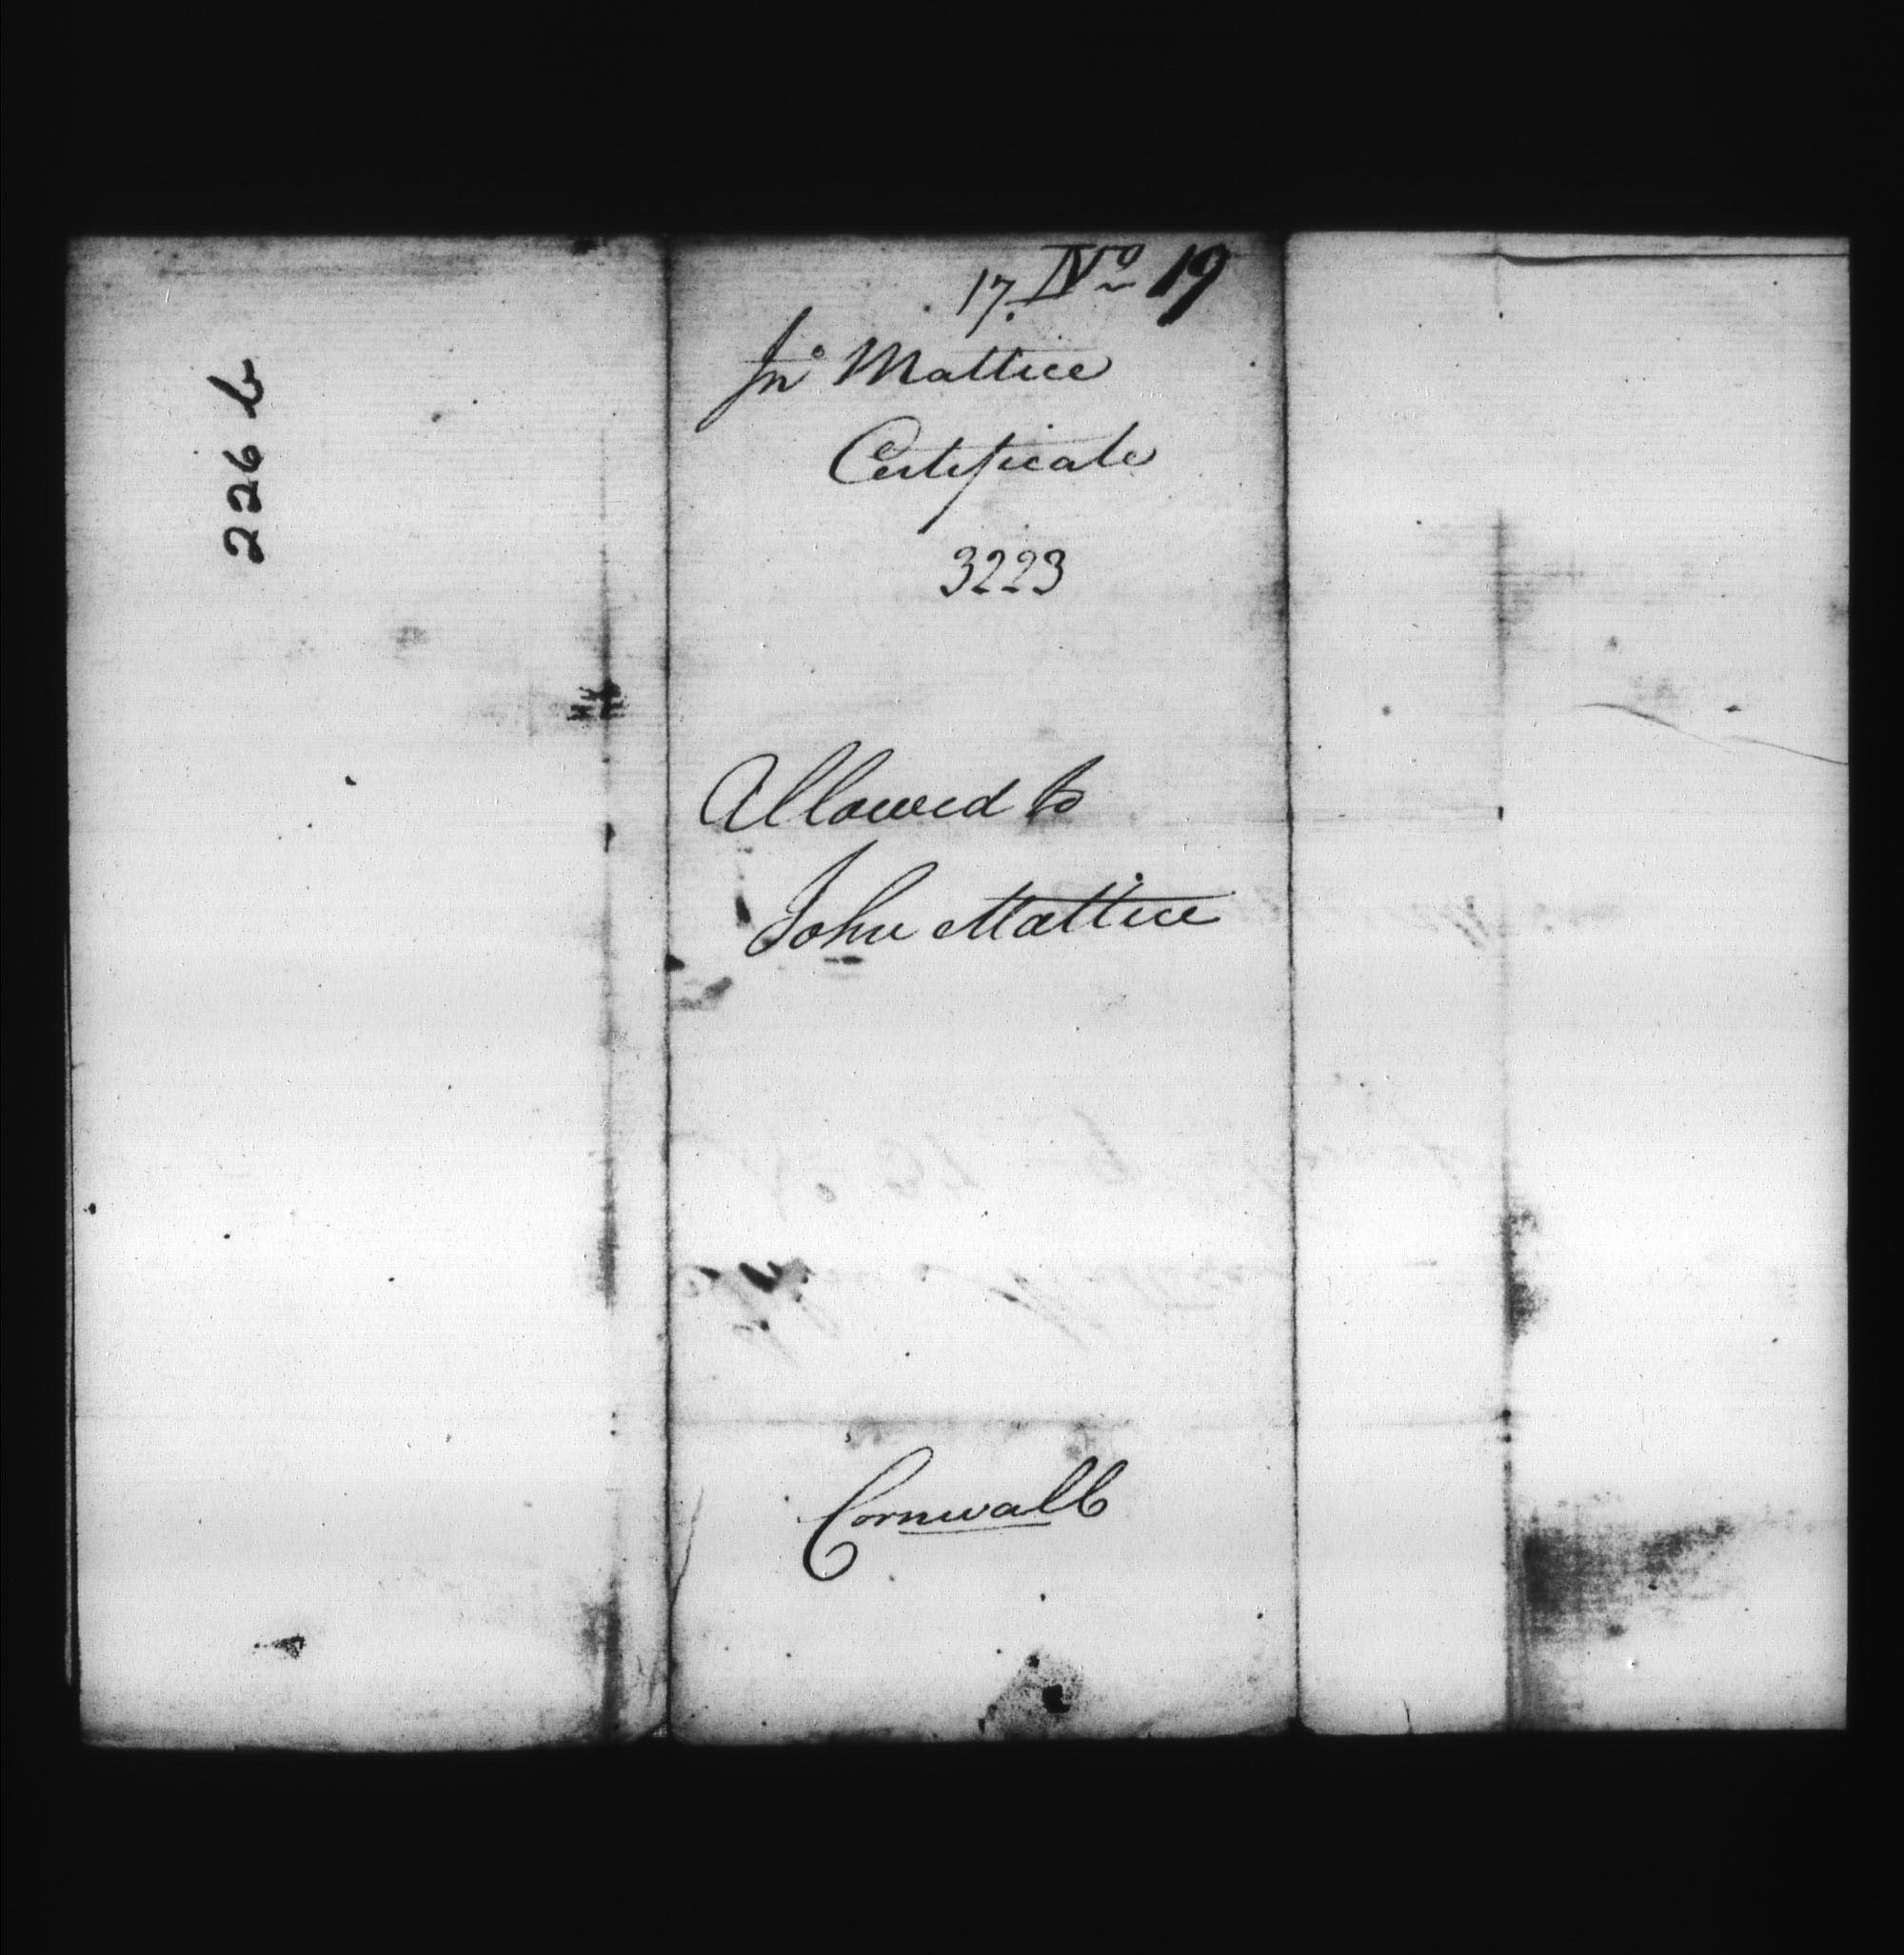 226 b
17. No 19
Jno Mattice
Certificate
3223
Allowed to
John Mattice
Cornwall